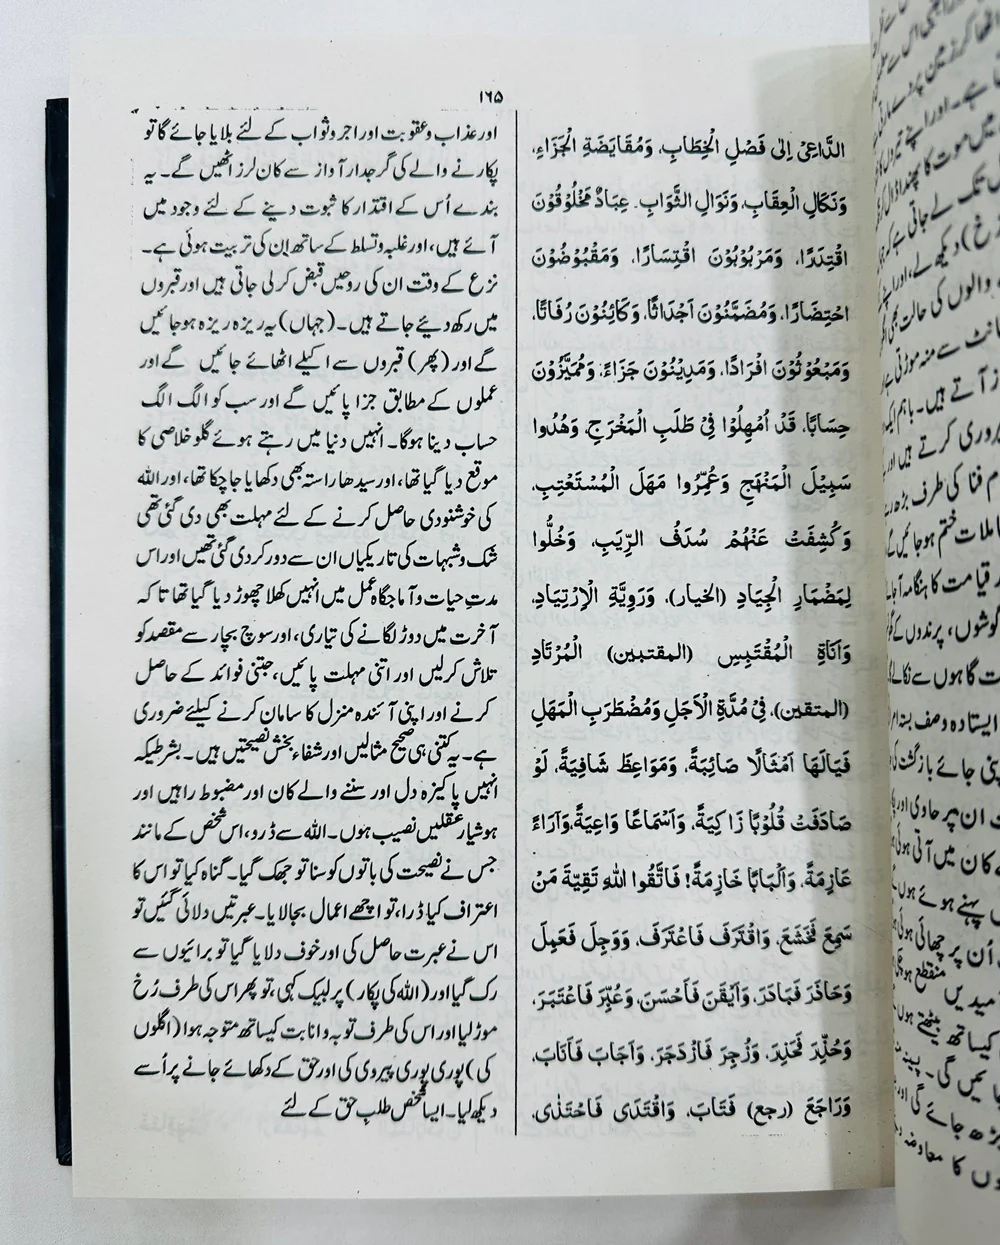 ۱۶۵
الدَّاعِیْ اِلٰی فَصْلِ الْخِطَابِ، وَمُقَایَضَةِ الْجَزَاءِ،
وَنَکَالِ الْعِقَابِ، وَنَوَالِ الثَّوَابِ. عِبَادٌ مَخْلُوْقُوْنَ
اقْتِدَرًا، وَمَرْبُوْبُوْنَ اقْتِسَارًا، وَمَقْبُوْضُوْنَ
احْتِضَارًا، وَمُضَمَّنُوْنَ اَجْدَاثًا، وَکَائِنُوْنَ رُفَاتًا،
وَمَبْعُوْثُوْنَ اَفْرَادًا، وَمَدِیْنُوْنَ جَزَاءً، وَمُمَیَّزُوْنَ
حِسَابًا، قَدْ اُمْهِلُوْا فِیْ طَلَبِ الْمَخْرَجِ، وَهُدُوا
سَبِیْلَ الْمَنْهَجِ وَعُمِّرُوا مَهَلَ الْمُسْتَعْتِبِ،
وَکُشِفَتْ عَنْهُمْ سُدَفُ الرِّیَبِ، وَخُلُّوا
لِمِضْمَارِ الْجِیَادِ (الخیار)، وَرَوِیَّةِ الْاِرْتِیَادِ،
وَاَنَاةِ الْمُقْتَبِسِ (المقتبین) الْمُرْتَادِ
(المتقین)، فِیْ مُدَّةِ الْاَجَلِ وَمُضْطَرَبِ الْمَهَلِ
فَیَالَهَا اَمْثَالًا صَائِبَةً، وَمَوَاعِظَ شَافِیَةً، لَوْ
صَادَفَتْ قُلُوْبًا زَاکِیَةً، وَاَسْمَاعًا وَاعِیَةً، وَآرَاءً
عَازِمَةً، وَاَلْبَابًا حَازِمَةً! فَاتَّقُوا اللهَ تَقِیَّةَ مَنْ
سَمِعَ فَخَشَعَ، وَاقْتَرَفَ فَاعْتَرَفَ، وَوَجِلَ فَعَمِلَ
وَحَاذَرَ فَبَادَرَ، وَاَیْقَنَ فَاَحْسَنَ، وَعُبِّرَ فَاعْتَبَرَ،
وَحُذِّرَ فَحَذِرَ، وَزُجِرَ فَازْدَجَرَ، وَاَجَابَ فَاَنَابَ،
وَرَاجَعَ (رجع) فَتَابَ، وَاقْتَدٰی فَاحْتَذٰی،
اور عذاب و عقوبت اور اجر و ثواب کے لئے بلایا جائے گا تو
پکارنے والے کی گرجدار آواز سے کان لرز اٹھیں گے۔ یہ
بندے اُس کے اقتدار کا ثبوت دینے کے لئے وجود میں
آئے ہیں، اور غلبہ و تسلط کے ساتھ اِن کی تربیت ہوئی ہے۔
نزع کے وقت ان کی روحیں قبض کر لی جاتی ہیں اور قبروں
میں رکھ دیئے جاتے ہیں۔ (جہاں) یہ ریزہ ریزہ ہو جائیں
گے اور (پھر) قبروں سے اکیلے اٹھائے جائیں گے اور
عملوں کے مطابق جزا پائیں گے اور سب کو الگ الگ
حساب دینا ہوگا۔ انہیں دنیا میں رہتے ہوئے گلو خلاصی کا
موقع دیا گیا تھا، اور سیدھا راستہ بھی دکھایا جا چکا تھا، اور اللہ
کی خوشنودی حاصل کرنے کے لئے مہلت بھی دی گئی تھی
شک و شبہات کی تاریکیاں ان سے دور کر دی گئی تھیں اور اس
مدتِ حیات و آماجگاہ عمل میں انہیں کھلا چھوڑ دیا گیا تھا تا کہ
آخرت میں دوڑ لگانے کی تیاری، اور سوچ بچار سے مقصد کو
تلاش کر لیں اور اتنی مہلت پائیں، جتنی فوائد کے حاصل
کرنے اور اپنی آئندہ منزل کا سامان کرنے کیلئے ضروری
ہے۔ یہ کتنی ہی صحیح مثالیں اور شفاء بخش نصیحتیں ہیں۔ بشرطیکہ
انہیں پاکیزہ دل اور سننے والے کان اور مضبوط راہیں اور
ہوشیار عقلیں نصیب ہوں۔ اللہ سے ڈرو، اس شخص کے مانند
جس نے نصیحت کی باتوں کو سنا تو جھک گیا۔ گناہ کیا تو اس کا
اعتراف کیا ڈرا، تو اچھے اعمال بجا لایا۔ عبرتیں دلائی گئیں تو
اس نے عبرت حاصل کی اور خوف دلایا گیا تو برائیوں سے
رک گیا اور (اللہ کی پکار) پر لبیک کہی، تو پھر اس کی طرف رُخ
موڑ لیا اور اس کی طرف توبہ و انابت کیساتھ متوجہ ہوا (اگلوں
کی) پوری پوری پیروی کی اور حق کے دکھائے جانے پر اُسے
دیکھ لیا۔ ایسا شخص طلبِ حق کے لئے